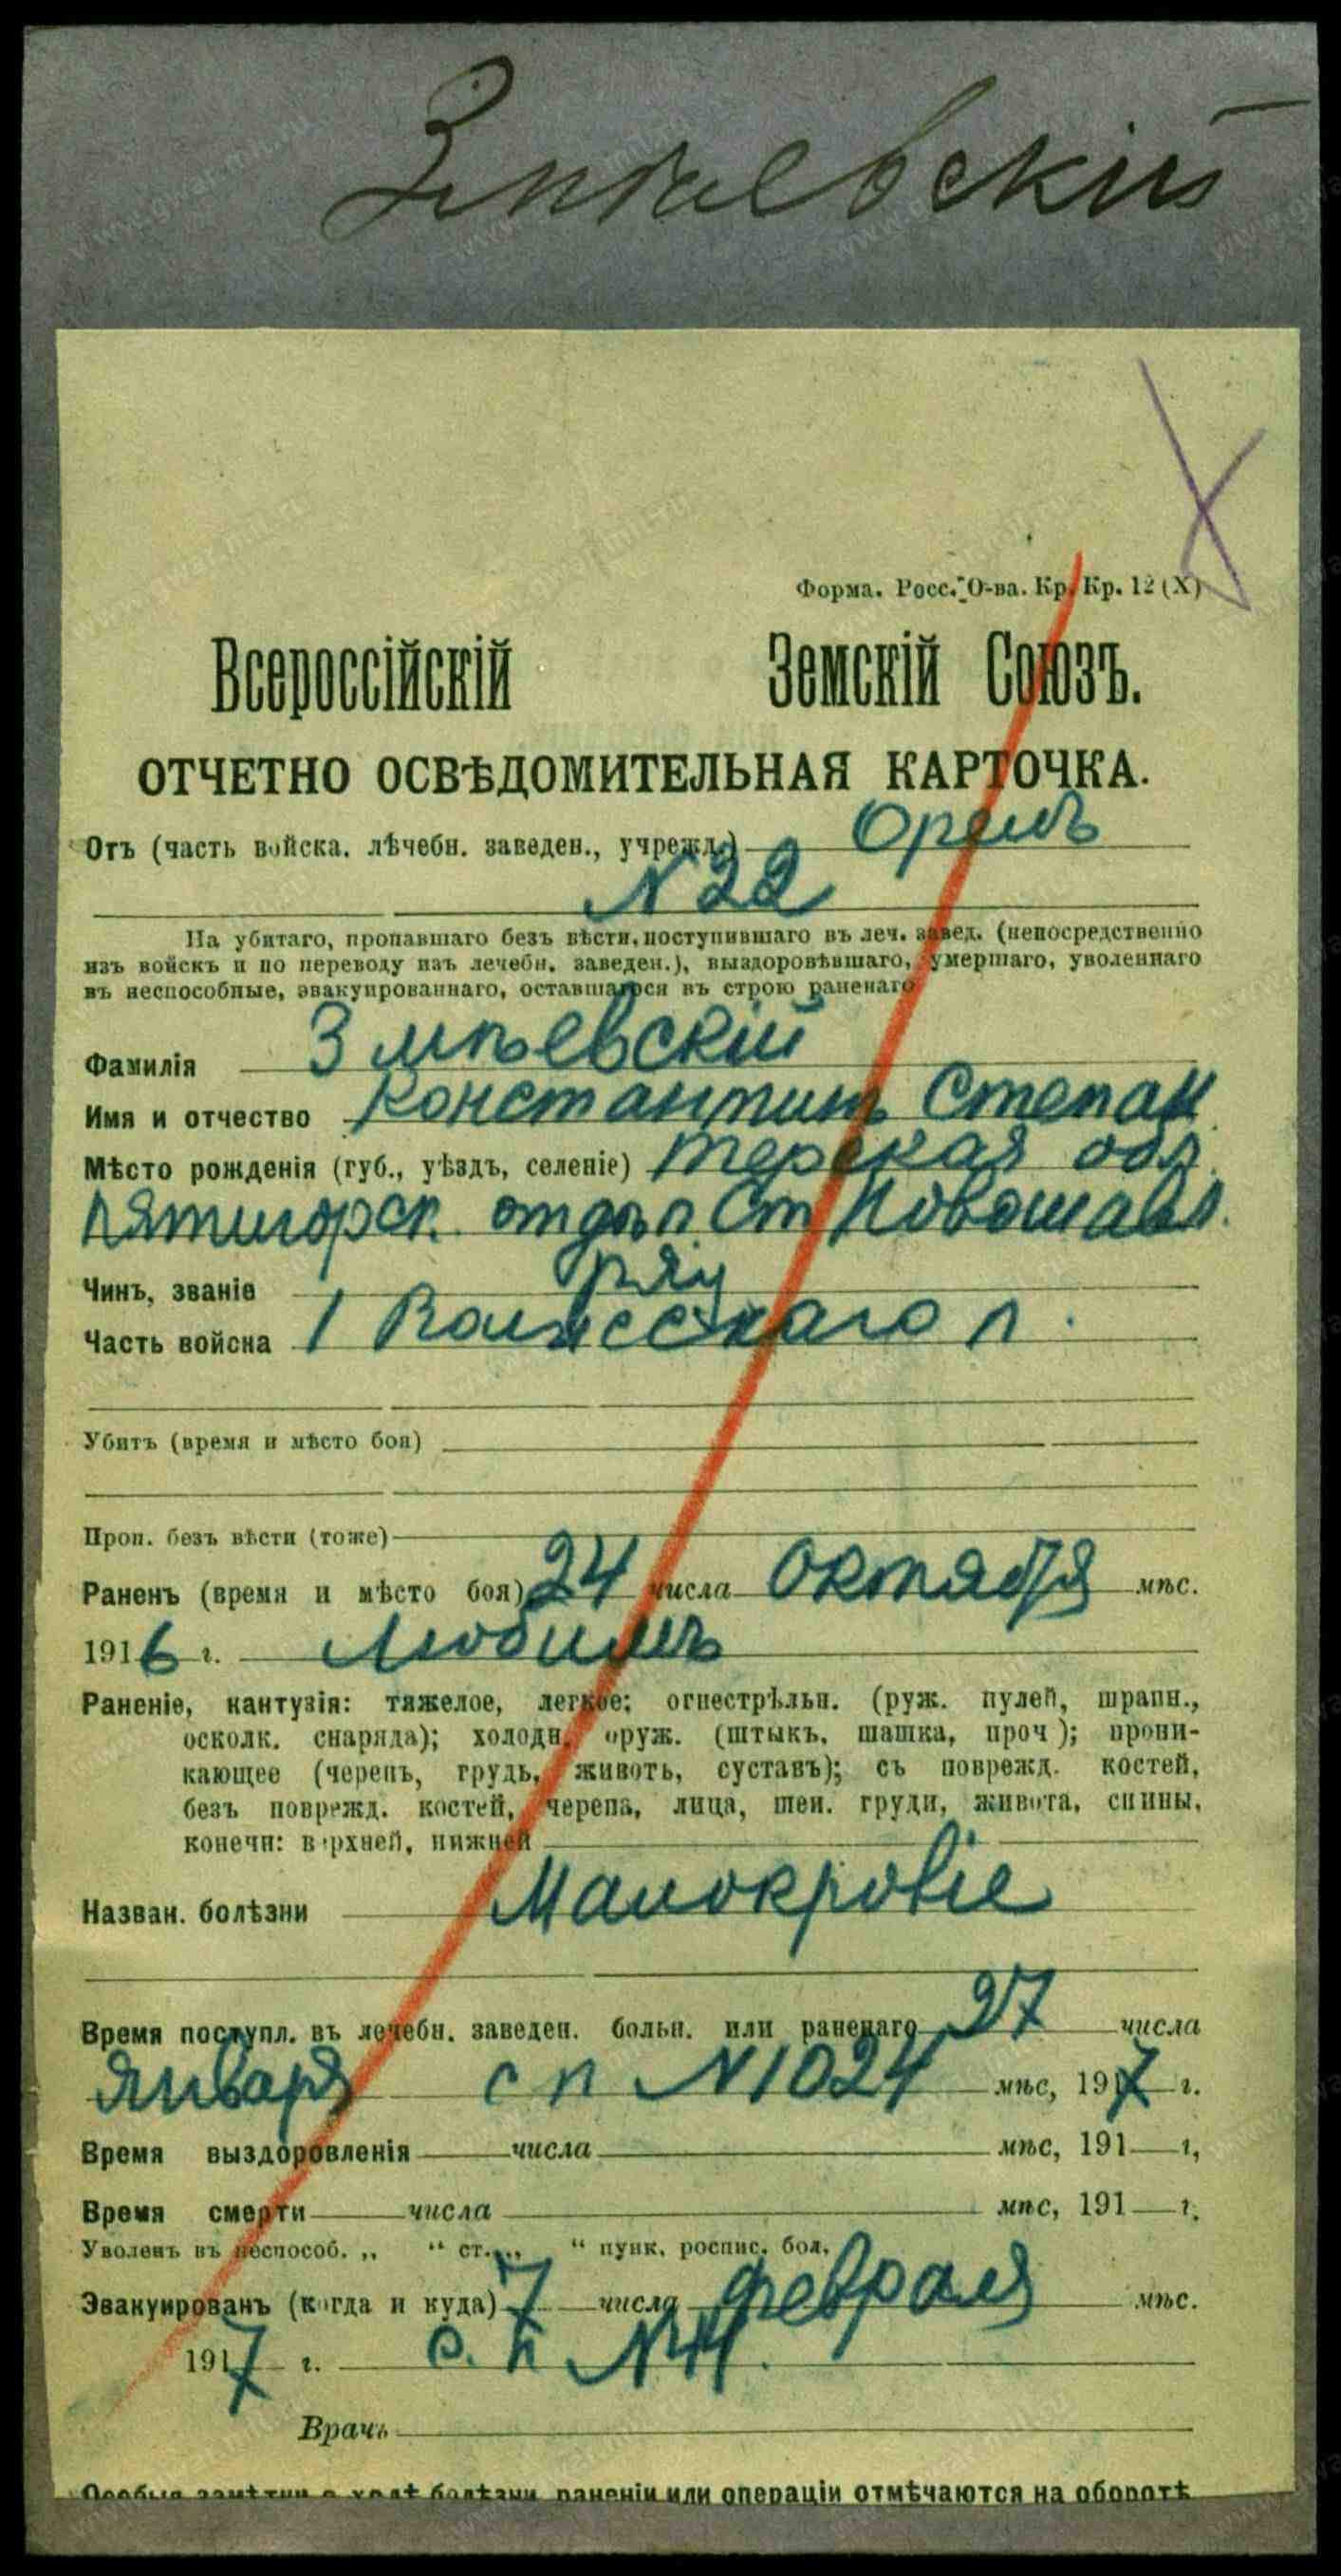 Змѣевскій
Форма. Росс. О-ва. Кр. Кр. 12 (X)
Всероссійскій Земскій Союзъ.
ОТЧЕТНО ОСВѢДОМИТЕЛЬНАЯ КАРТОЧКА.
Отъ (часть войска. лѣчебн. заведен., учрежд.) Орелъ
N 22
На убитаго, пропавшаго безъ вѣсти, поступившаго въ леч. завед. (непосредственно
изъ войскъ и по переводу изъ лечебн. заведен.), выздоровѣвшаго, умершаго, уволеннаго
въ неспособные, эвакуированнаго, оставшагося въ строю раненаго
Фамилія Змѣевскій
Имя и отчество Константинъ Степан
Мѣсто рожденія (губ., уѣздъ, селеніе) Терская обл.
Пятигорск. отдѣл Ст Новопавл.
Чинъ, званіе ряд
Часть войска 1 Волжскаго п.
Убитъ (время и мѣсто боя)
Проп. безъ вѣсти (тоже)
Раненъ (время и мѣсто боя) 24 числа Октября мѣс.
1916 г.
Раненіе, кантузія: тяжелое, легкое; огнестрѣльн. (руж. пулей, шрапн.,
осколк. снаряда); холодн. оруж. (штыкъ, шашка, проч); прони-
кающее (черепъ, грудь, животъ, суставъ); съ поврежд. костей,
безъ поврежд. костей, черепа, лица, шеи. груди, живота, спины,
конечн: верхней, нижней
Назван. болѣзни Малокровіе
Время поступл. въ лечебн. заведен. больн. или раненаго 27 числа
января с п N 1024 мѣс, 1917 г.
Время выздоровленія числа мѣс, 191 г,
Время смерти числа мѣс, 191 г.
Уволенъ въ неспособ. „ “ ст. „ “ пунк. роспис. бол.
Эвакуированъ (когда и куда) 7 числа февраля мѣс.
1917 г. с. п N 41.
Врачъ
Особыя замѣтки о ходѣ болѣзни, раненіи или операціи отмѣчаются на оборотѣ